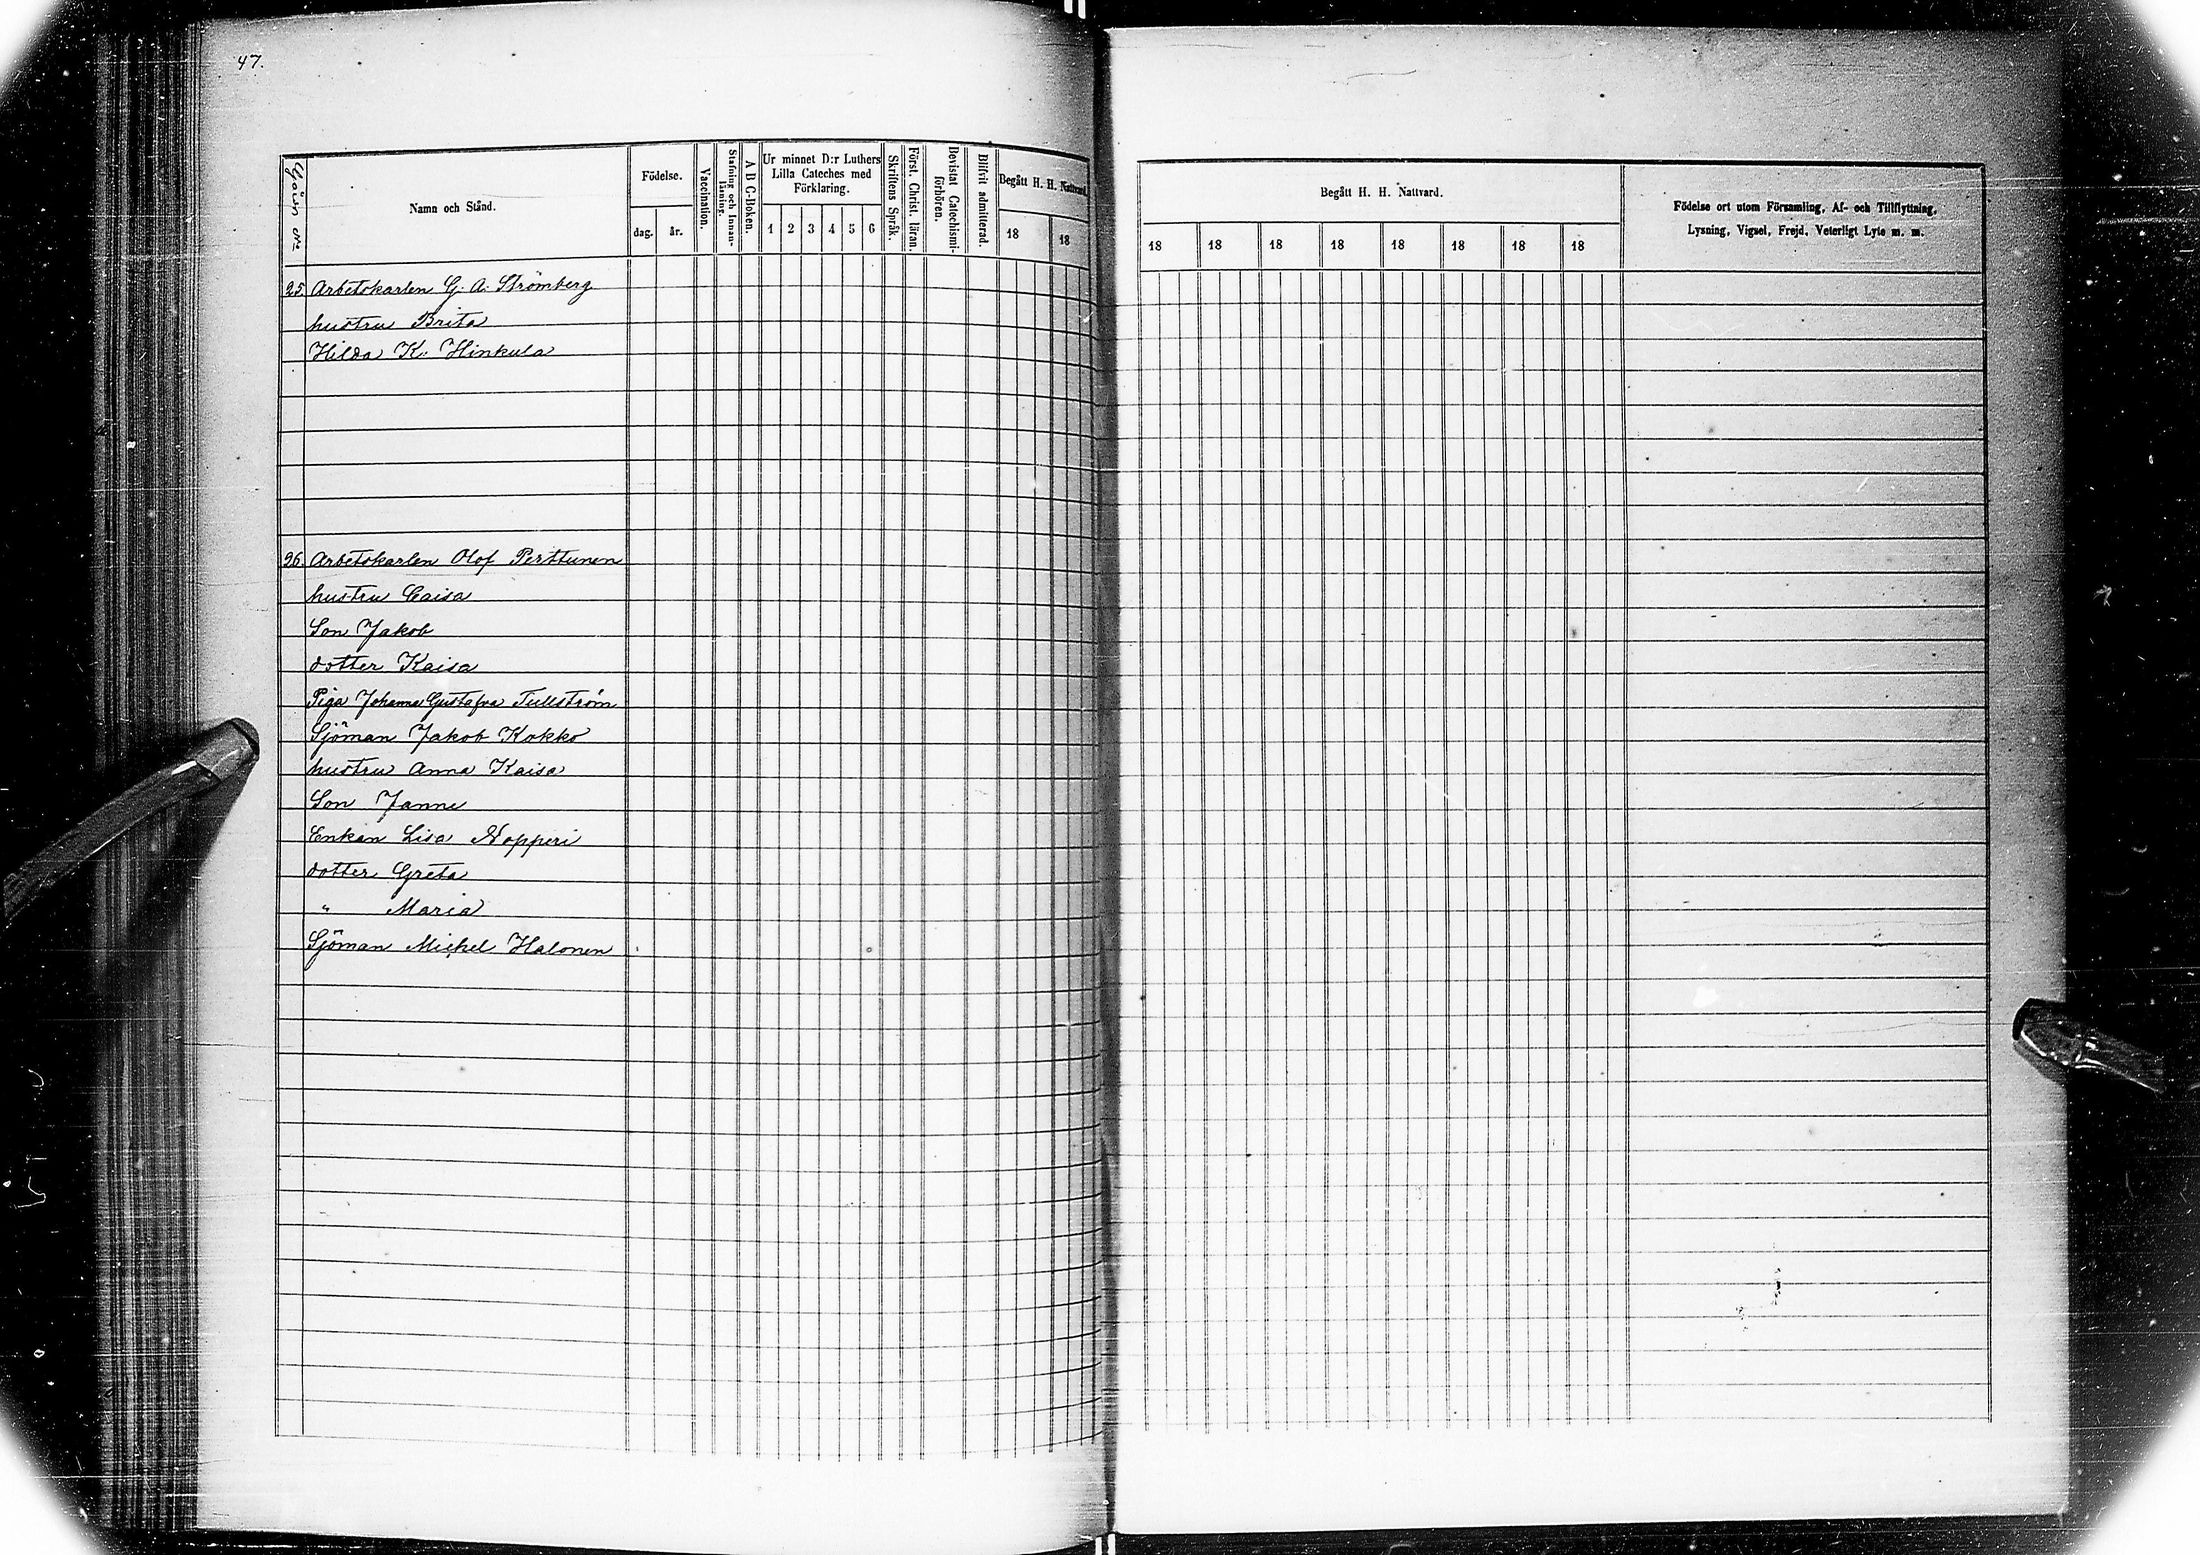 47.
Gården No
Namn och Stånd.
Födelse.
dag.
år.
Vaccination.
Stafning och Innan-
läsning.
A B C-Boken.
Ur minnet D:r Luthers
Lilla Cateches med
Förklaring.
1 2 3 4 5 6
Skriftens Språk.
Först. Christ. läran.
Bevistat Catechismi-
förhören.
Blifvit admitterad.
Begått H. H. Nattvard.
18 18
Begått H. H. Nattvard.
18 18 18 18 18 18 18 18
Födelse ort utom Församling, Af- och Tillflyttning,
Lysning, Vigsel, Frejd, Veterligt Lyte m. m.
25. Arbetskarlen G. A. Strömberg
hustru Brita
Hilda K. Hinkula
26. Arbetskarlen Olof Perttunen
hustru Caisa
Son Jakob
dotter Kaisa
Piga Johanna Gustafva Tullström
Sjöman Jakob Kokko
hustru Anna Kaisa
Son Janne
Enkan Lisa Nopperi
dotter Greta
" Maria
Sjöman Michel Halonen